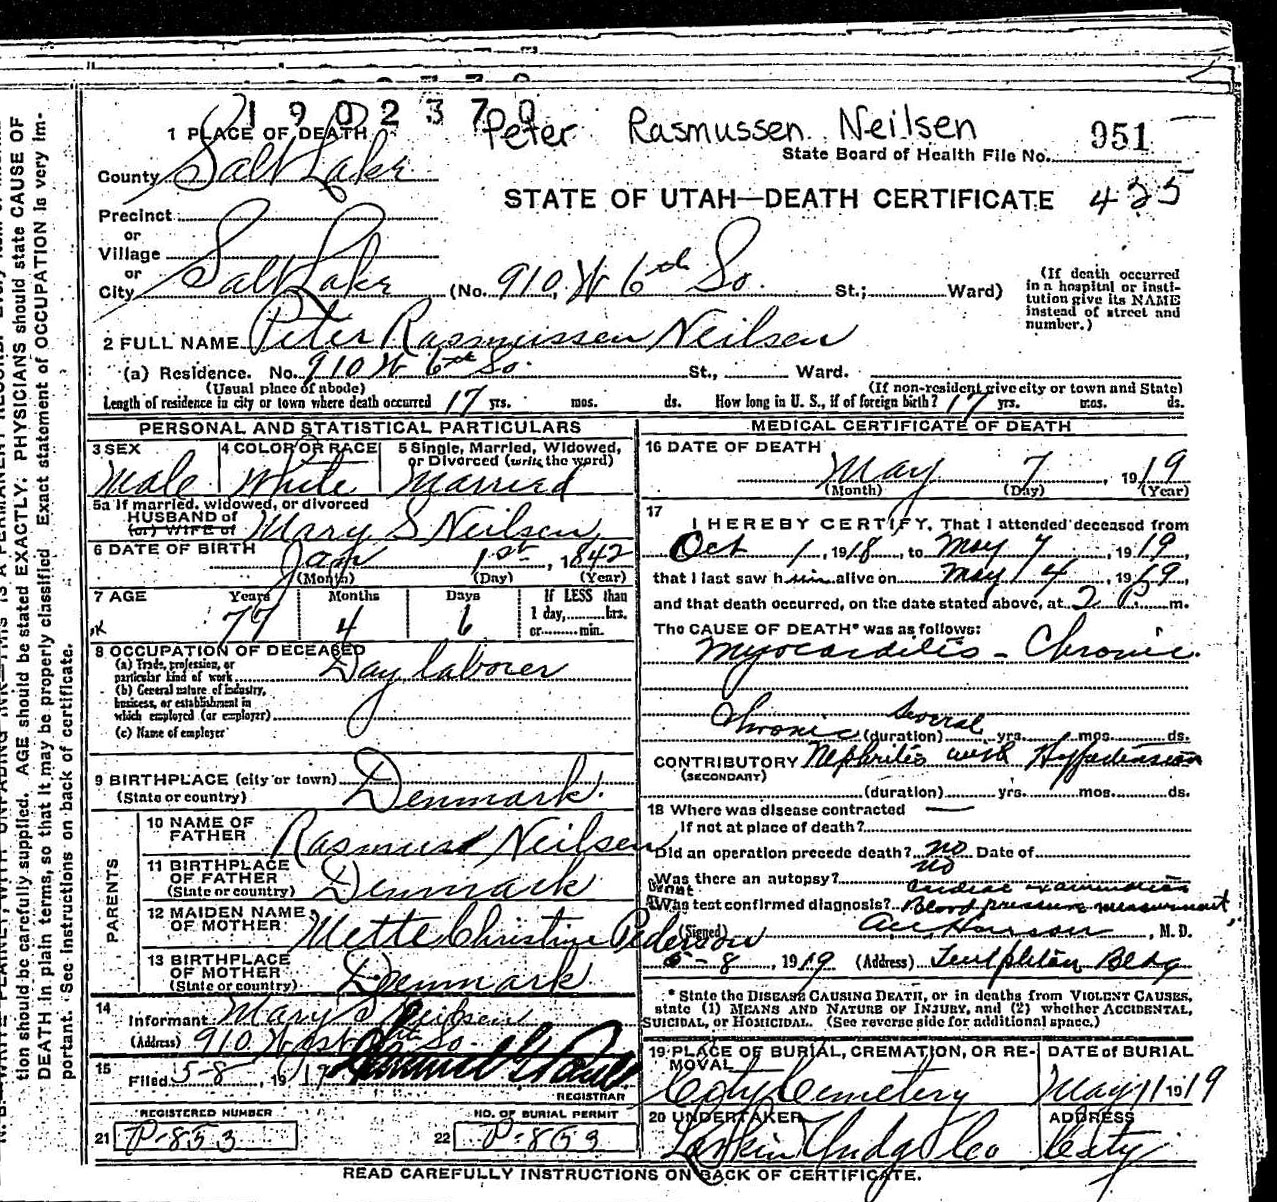 1902370
Peter Rasmussen Neilsen
1 PLACE OF DEATH
State Board of Health File No. 951
County Salt Lake
STATE OF UTAH—DEATH CERTIFICATE 425
Precinct
or
Village
or
City Salt Lake (No. 910 W 6th So. St.; Ward)
(If death occurred in a hospital or institution give its NAME instead of street and number.)
2 FULL NAME Peter Rasmussen Neilsen
(a) Residence. No. 910 W 6th So. St., Ward.
(Usual place of abode) (If non-resident give city or town and State)
Length of residence in city or town where death occurred 17 yrs. mos. ds. How long in U. S., if of foreign birth? 17 yrs. mos. ds.
PERSONAL AND STATISTICAL PARTICULARS
3 SEX Male
4 COLOR OR RACE White
5 Single, Married, Widowed, or Divorced (write the word) Married
5a If married, widowed, or divorced
HUSBAND of
(or) WIFE of Mary S Neilsen
6 DATE OF BIRTH Jan 1st, 1842
(Month) (Day) (Year)
7 AGE Years Months Days If LESS than
77 4 6 1 day, hrs.
or min.
8 OCCUPATION OF DECEASED
(a) Trade, profession, or particular kind of work Day laborer
(b) General nature of industry, business, or establishment in which employed (or employer)
(c) Name of employer
9 BIRTHPLACE (city or town)
(State or country) Denmark.
PARENTS
10 NAME OF FATHER Rasmus Neilsen
11 BIRTHPLACE OF FATHER (State or country) Denmark
12 MAIDEN NAME OF MOTHER Mette Christine Pederson
13 BIRTHPLACE OF MOTHER (State or country) Denmark
14
Informant Mary S Neilsen
(Address) 910 West 6th So.
15
Filed 5-8, 1919
REGISTRAR
REGISTERED NUMBER NO. OF BURIAL PERMIT
21 P-853 22 P-853
MEDICAL CERTIFICATE OF DEATH
16 DATE OF DEATH
May 7, 1919
(Month) (Day) (Year)
17
I HEREBY CERTIFY, That I attended deceased from
Oct 1, 1918, to May 7, 1919
that I last saw him alive on May 4, 1919
and that death occurred, on the date stated above, at 2 P. m.
The CAUSE OF DEATH* was as follows:
Myocarditis - Chronic.
several
Chronic (duration) yrs. mos. ds.
CONTRIBUTORY Nephritis with Hypertension
(SECONDARY)
(duration) yrs. mos. ds.
18 Where was disease contracted
If not at place of death?
Did an operation precede death? no Date of
Was there an autopsy? no
Cardiac examination
What test confirmed diagnosis? Blood pressure measurement,
(Signed) , M. D.
5-8, 1919 (Address) Templeton Bldg
* State the DISEASE CAUSING DEATH, or in deaths from VIOLENT CAUSES,
state (1) MEANS AND NATURE OF INJURY, and (2) whether ACCIDENTAL,
SUICIDAL, or HOMICIDAL. (See reverse side for additional space.)
19 PLACE OF BURIAL, CREMATION, OR REMOVAL City Cemetery
DATE of BURIAL May 11 1919
20 UNDERTAKER
ADDRESS City
READ CAREFULLY INSTRUCTIONS ON BACK OF CERTIFICATE.
tion should be carefully supplied. AGE should be stated EXACTLY. PHYSICIANS should state CAUSE OF
DEATH in plain terms, so that it may be properly classified. Exact statement of OCCUPATION is very im-
portant. See instructions on back of certificate.